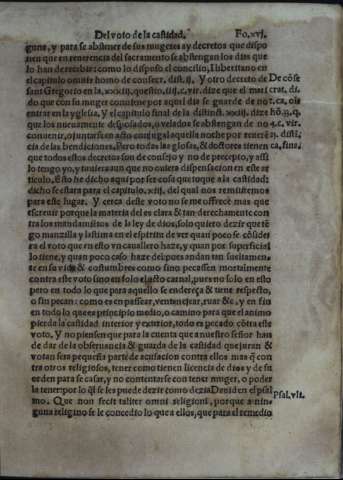 Del voto de la castidad. Fo.xvj.
guna, y para se abstener de sus mugeres ay decretos que dispo
nen que en reuerencia del sacramento se abstengan los dias que
lo han de recebir: como lo dispuso el concilio, Liberitano en
el capitulo omnis homo de consecr. dist. ij. Y otro decreto de
sant Gregorio en la .xxxiij. questio, iiij. c. vir. dize que el marid
do que con su muger conuiene por aquel dia se guarde de no
entrar en la yglesia. Y el capitulo final de la distinct. xxiij. dize
que los nueuamente desposados, o velados se abstengan de no
conuenir, o juntarse en acto conjugal aquella noche por reuerē
cia de las bendiciones. Pero todas las glosas, & doctores tienen
que todos estos decretos son de consejo y no de precepto, y assi
lo tengo yo, y tuuiera aun que no quiera dispensacion en este ar
ticulo. Esto he dicho aqui por ser cosa que toque a la castidad:
dicho se estara para el capitulo. xiij. del qual nos remitiremos
para este lugar. Y cerca deste voto no se me offrece mas que
escreuir porque la materia del es clara & tan derechamente con
tra los mandamiẽtos de la ley de dios, solo quiero dezir que tẽ
go manzilla y lastima en el espiritu de ver quan poco se conside
ra el voto que en esto vn cauallero haze, y quan por superficial
lo tiene, y quan poco caso haze del: pues andan tan sueltamen-
te en su vida & costumbres como sino pecassen mortalmente
contra este voto sino en solo el acto carnal, pues no solo en esto
pero en todo lo que para aquello se endereça & tiene respecto,
o sin pecan: como es en passear, ventenejear, ruar &c. y en fin
en todo lo que es principio medio, o camino para que el animo
pierda la castidad interior y exterior, todo es pecado cōtra este
voto. Y no piensen que para la cuenta que a nuestro señor han
de dar de la obseruancia & guarda de la castidad que juran &
votan sera pequeña parte de acusacion contra ellos mas q̄ con
tra otros religiosos, tener como tienen licencia de dios y de su
orden para se casar, y no contentarse con tener muger, o poder
la tener: por lo q̄l se les puede dezir como dezia Dauid en el psal
mo. Que non fecit taliter omni religioni, porque a nin-
guna religino se le concedio lo que a ellos, que para el remedio
Psal.vlt.